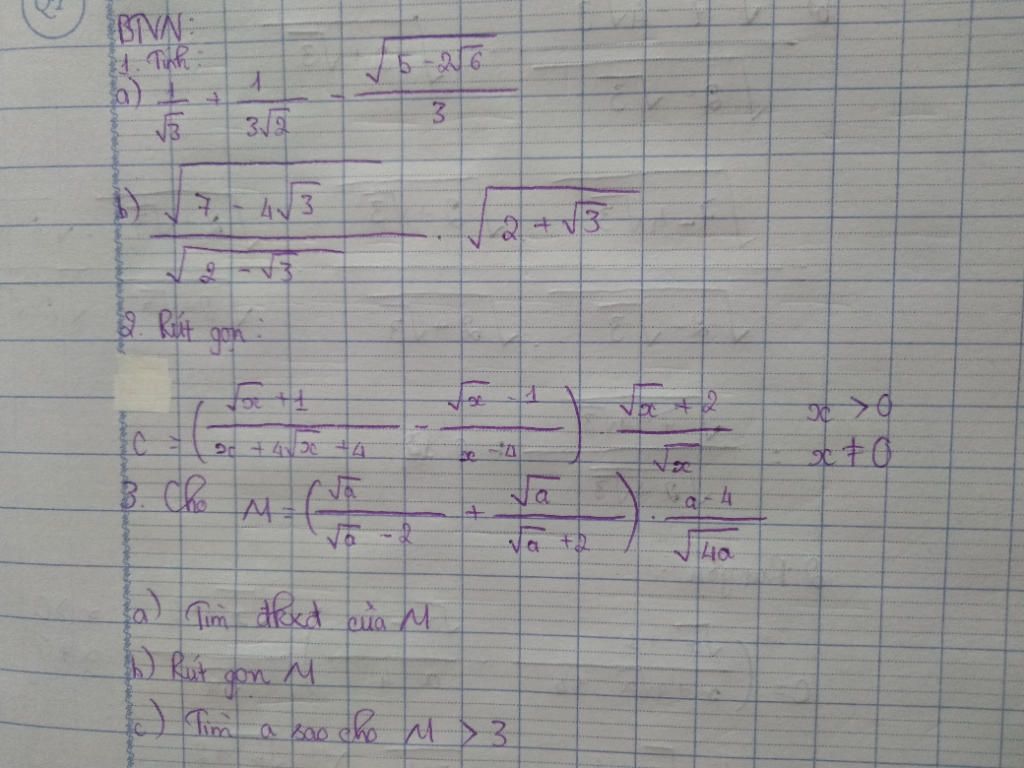 BTVN:
1. Tính:
a) 1/√3 + 1/(3√2) - √(5 - 2√6)/3
b) √(7 - 4√3)/√(2 - √3) . √(2 + √3)
2. Rút gọn:
C = ((√x + 1)/(x + 4√x + 4) - (√x - 1)/(x - 4)) . (√x + 2)/√x x > 0 x ≠ 0
3. Cho M = (√a/(√a - 2) + √a/(√a + 2)) . (a - 4)/√(4a)
a) Tìm đkxđ của M
b) Rút gọn M
c) Tìm a sao cho M > 3